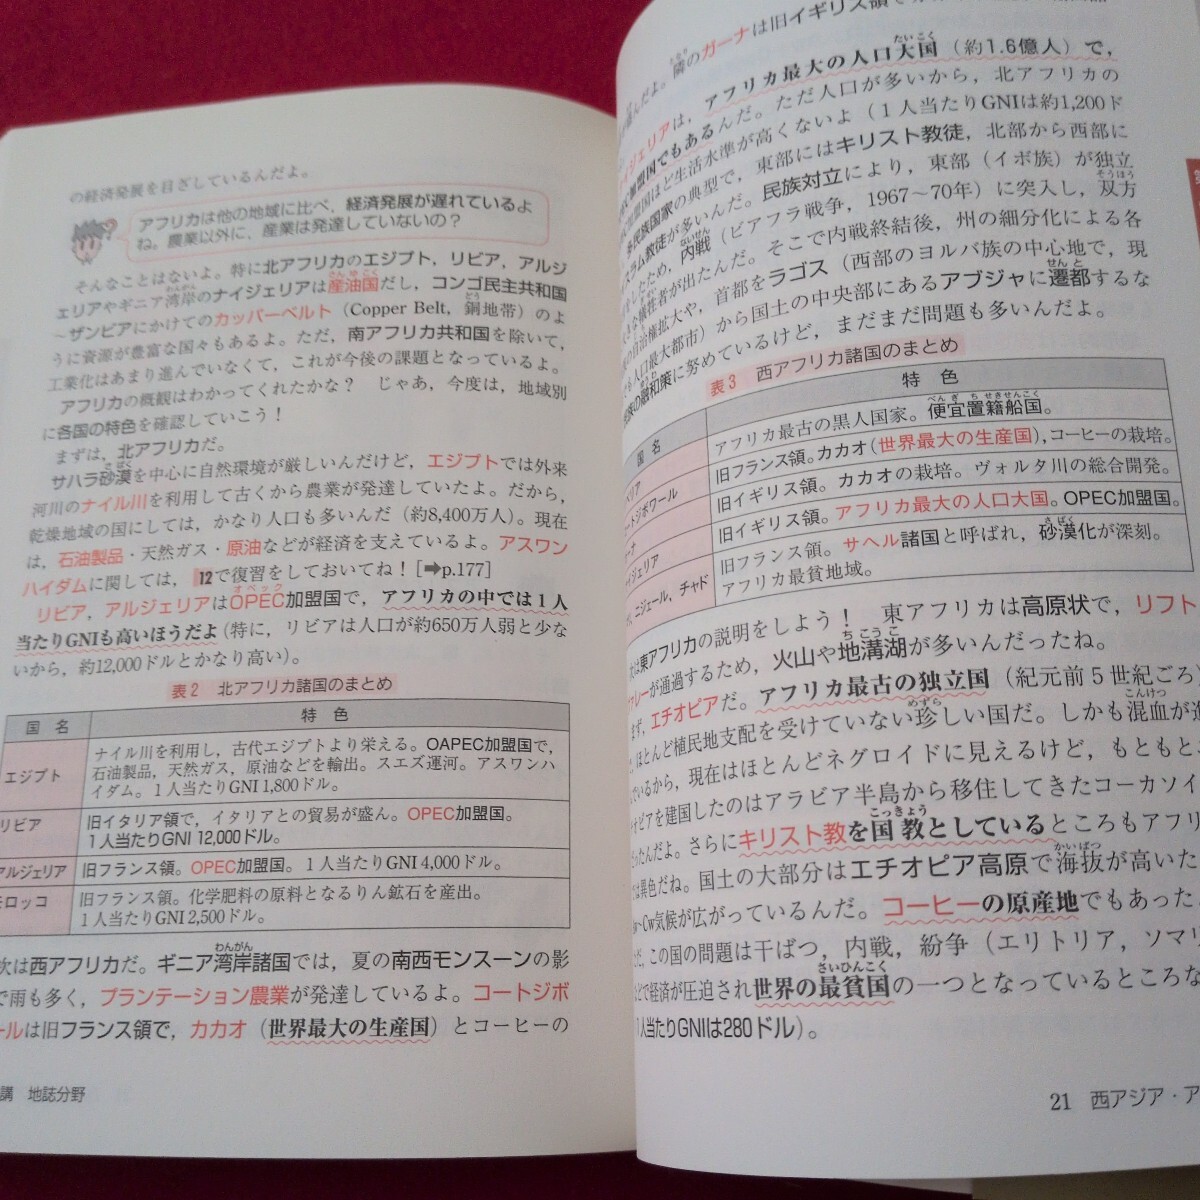 の経済発展を目ざしているんだよ。
アフリカは他の地域に比べ，経済発展が遅れているよ
ね。農業以外に，産業は発達していないの？
そんなことはないよ。特に北アフリカのエジプト，リビア，アルジ
ェリアやギニア湾岸のナイジェリアは産油国だし，コンゴ民主共和国
～ザンビアにかけてのカッパーベルト（Copper Belt，銅地帯）のよ
うに資源が豊富な国々もあるよ。ただ，南アフリカ共和国を除いて，
工業化はあまり進んでいなくて，これが今後の課題となっているよ。
アフリカの概観はわかってくれたかな？　じゃあ，今度は，地域別
に各国の特色を確認していこう！
まずは，北アフリカだ。
サハラ砂漠を中心に自然環境が厳しいんだけど，エジプトでは外来
河川のナイル川を利用して古くから農業が発達していたよ。だから，
乾燥地域の国にしては，かなり人口も多いんだ（約8,400万人）。現在
は，石油製品・天然ガス・原油などが経済を支えているよ。アスワン
ハイダムに関しては，12で復習をしておいてね！［➡p.177］
リビア，アルジェリアはOPEC加盟国で，アフリカの中では１人
当たりGNIも高いほうだよ（特に，リビアは人口が約650万人弱と少な
いから，約12,000ドルとかなり高い）。
表2　北アフリカ諸国のまとめ
国 名　特 色
エジプト　ナイル川を利用し，古代エジプトより栄える。OAPEC加盟国で，
石油製品，天然ガス，原油などを輸出。スエズ運河。アスワンハ
イダム。１人当たりGNI 1,800ドル。
リビア　旧イタリア領で，イタリアとの貿易が盛ん。OPEC加盟国。
１人当たりGNI 12,000ドル。
アルジェリア　旧フランス領。OPEC加盟国。１人当たりGNI 4,000ドル。
モロッコ　旧フランス領。化学肥料の原料となるりん鉱石を産出。
１人当たりGNI 2,500ドル。
次は西アフリカだ。ギニア湾岸諸国では，夏の南西モンスーンの影
で雨も多く，プランテーション農業が発達しているよ。コートジボ
ールは旧フランス領で，カカオ（世界最大の生産国）とコーヒーの
講　地誌分野
んだよ。隣のガーナは旧イギリス領で
ジェリアは，アフリカ最大の人口大国（約1.6億人）で，
加盟国でもあるんだ。ただ人口が多いから，北アフリカの
加盟国ほど生活水準が高くないよ（１人当たりGNIは約1,200ド
民族国家の典型で，東部にはキリスト教徒，北部から西部に
スラム教徒が多いんだ。民族対立により，東部（イボ族）が独立
したため，内戦（ビアフラ戦争，1967～70年）に突入し，双方
きな犠牲者が出たんだ。そこで内戦終結後，州の細分化による各
の自治権拡大や，首都をラゴス（西部のヨルバ族の中心地で，現
も人口最大都市）から国土の中央部にあるアブジャに遷都するな
族の融和策に努めているけど，まだまだ問題も多いんだよ。
表3　西アフリカ諸国のまとめ
国 名　特 色
ベリア　アフリカ最古の黒人国家。便宜置籍船国。
ートジボワール　旧フランス領。カカオ（世界最大の生産国），コーヒーの栽培。
ーナ　旧イギリス領。カカオの栽培。ヴォルタ川の総合開発。
イジェリア　旧イギリス領。アフリカ最大の人口大国。OPEC加盟国。
ニジェール，チャド　旧フランス領。サヘル諸国と呼ばれ，砂漠化が深刻。
アフリカ最貧地域。
は東アフリカの説明をしよう！　東アフリカは高原状で，リフト
ァレーが通過するため，火山や地溝湖が多いんだったね。
まず，エチオピアだ。アフリカ最古の独立国（紀元前５世紀ごろ）
，ほとんど植民地支配を受けていない珍しい国だ。しかも混血が進
ているから，現在はほとんどネグロイドに見えるけど，もともと
オピアを建国したのはアラビア半島から移住してきたコーカソイ
ったんだよ。さらにキリスト教を国教としているところもアフリ
は異色だね。国土の大部分はエチオピア高原で海抜が高いた
～Cw気候が広がっているんだ。コーヒーの原産地でもあった
だ，この国の問題は干ばつ，内戦，紛争（エリトリア，ソマリ
どで経済が圧迫され世界の最貧国の一つとなっているところな
１人当たりGNIは280ドル）。
21　西アジア・ア